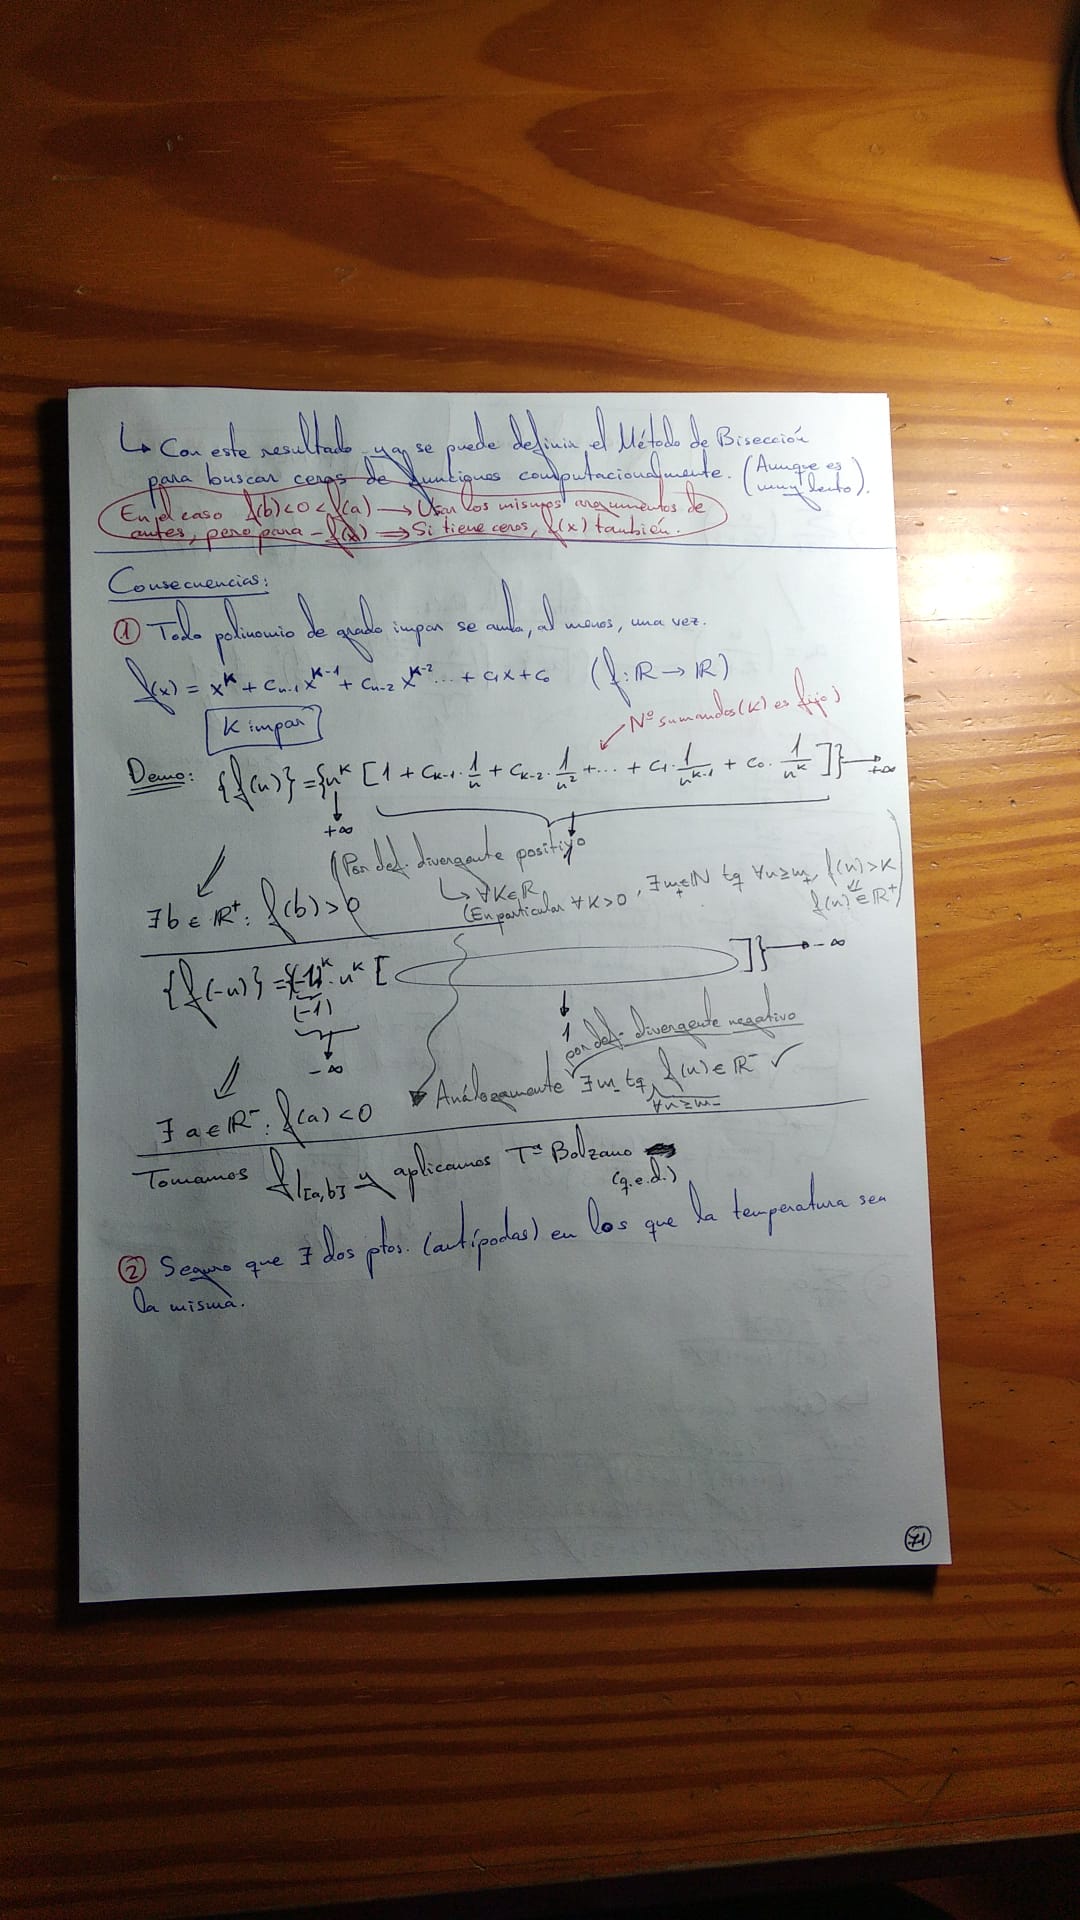 ↳ Con este resultado ya se puede definir el Método de Bisección
para buscar ceros de funciones computacionalmente. (Aunque es muy lento).
En el caso f(b)<0<f(a) → Usar los mismos argumentos de
antes, pero para -f(x) ⇒ Si tiene ceros, f(x) también.
Consecuencias:
① Todo polinomio de grado impar se anula, al menos, una vez.
f(x) = x^K + c_{n-1} x^{K-1} + c_{n-2} x^{K-2} ... + c₁x + c₀ (f: ℝ → ℝ)
K impar
Nº sumandos (K) es fijo
Demo: {f(n)} = {n^K [1 + c_{K-1}·1/n + c_{K-2}·1/n² + ... + c₁·1/n^{K-1} + c₀·1/n^K]} → +∞
↓ +∞ ↓ 1
(Por def. divergente positivo
↳ ∀K∈ℝ, ∃m₊∈ℕ tq ∀n≥m₊, f(n)>K
(En particular ∀K>0 f(n)∈ℝ⁺)
∃b∈ℝ⁺: f(b)>0
{f(-n)} = {(-1)^K · n^K [ ]} → -∞
(-1)
↓ -∞ ↓ 1
por def. divergente negativo
Análogamente ∃m₋ tq f(n)∈ℝ⁻ ✓
∀n≥m₋
∃a∈ℝ⁻: f(a)<0
Tomamos f|[a,b] y aplicamos Tª Bolzano
(q.e.d.)
② Seguro que ∃ dos ptos. (antípodas) en los que la temperatura sea
la misma.
71